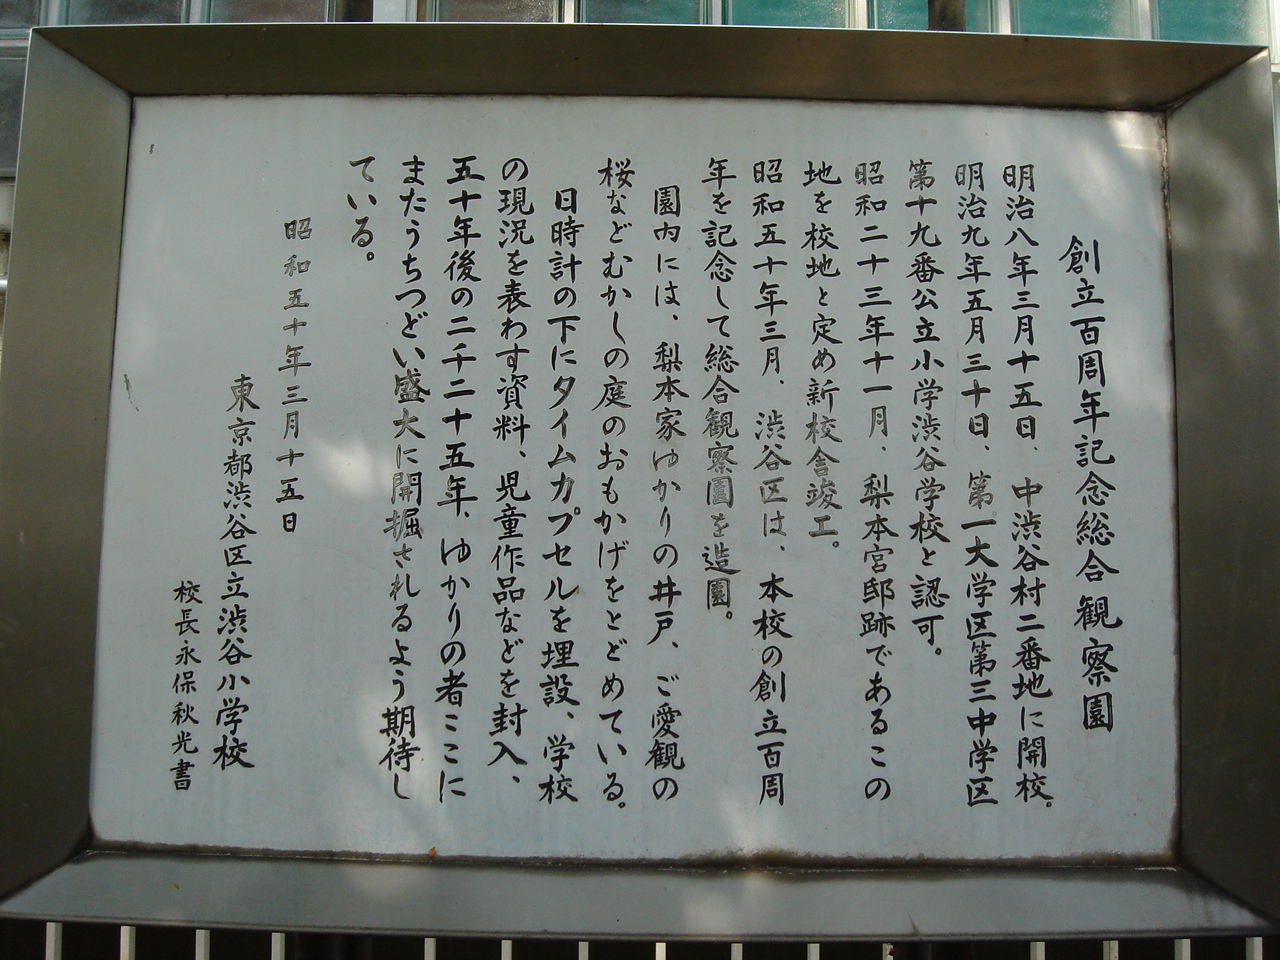 創立百周年記念総合観察園
明治八年三月十五日、中渋谷村二番地に開校。
明治九年五月三十日、第一大学区第三中学区
第十九番公立小学渋谷学校と認可。
昭和二十三年十一月、梨本宮邸跡であるこの
地を校地と定め新校舎竣工。
昭和五十年三月、渋谷区は、本校の創立百周
年を記念して総合観察園を造園。
園内には、梨本家ゆかりの井戸、ご愛観の
桜などむかしの庭のおもかげをとどめている。
日時計の下にタイムカプセルを埋設、学校
の現況を表わす資料、児童作品などを封入、
五十年後の二千二十五年、ゆかりの者ここに
またうちつどい盛大に開掘されるよう期待し
ている。
昭和五十年三月十五日
東京都渋谷区立渋谷小学校
校長永保秋光書